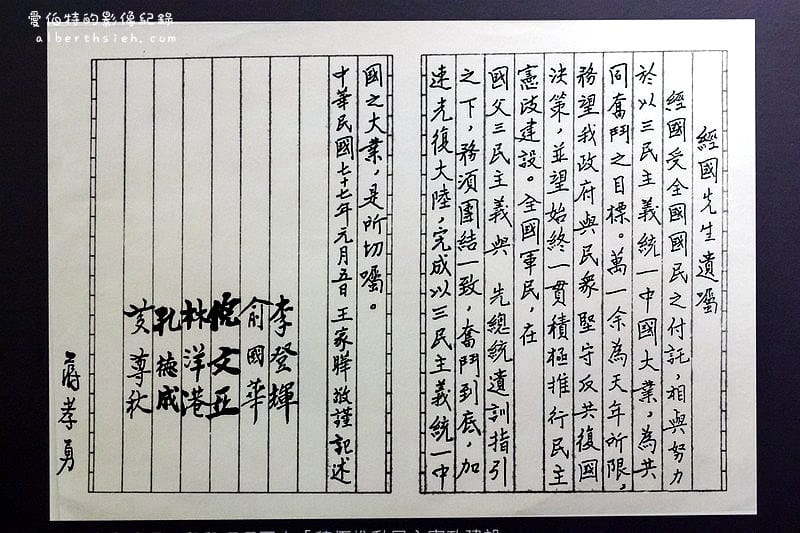 愛伯特的影像紀錄
alberthsieh.com
經國先生遺囑
經國受全國國民之付託，相與努力
於以三民主義統一中國大業，為共
同奮鬥之目標。萬一余為天年所限，
務望我政府與民衆堅守反共復國
決策，並望始終一貫積極推行民主
憲政建設。全國軍民，在
國父三民主義與 先總統遺訓指引
之下，務須團結一致，奮鬥到底，加
速光復大陸，完成以三民主義統一中
國之大業，是所切囑。
中華民國七十七年元月五日 王家驊 敬謹記述
李登輝
俞國華
倪文亞
林洋港
孔德成
蔣孝勇